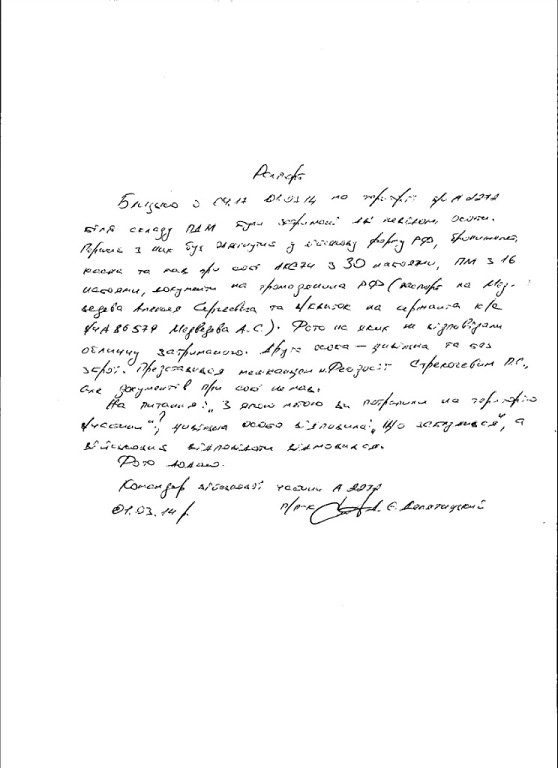 Рапорт
Близько о 04.17 01.03.14 на території в/ч А 2272
біля складу ПДМ були затримані дві невідомі особи.
Перша з них був одягнута у військову форму РФ, бронежилет,
каска та мав при собі АКС74 з 30 набоями, ПМ з 16
набоями, документи на громадянина РФ (паспорт на Мед-
ведева Алексея Сергеевича та в/квиток на сержанта к/с
в/ч А 86579 Медведєва А.С.). Фото на яких не відповідали
обличчу затриманого. Друга особа – цивільна та без
зброї. Представився мешканцем м.Феодосії П.С.,
але документів при собі не мав.
На питання: „З якою метою ви потрапили на територію
в/частини"?, цивільна особа відповіла: „Що заблукався", а
військовий відповідати відмовився.
Фото додаю.
Командир військової частини А 2272
01.03.14 р. п/п-к Є.